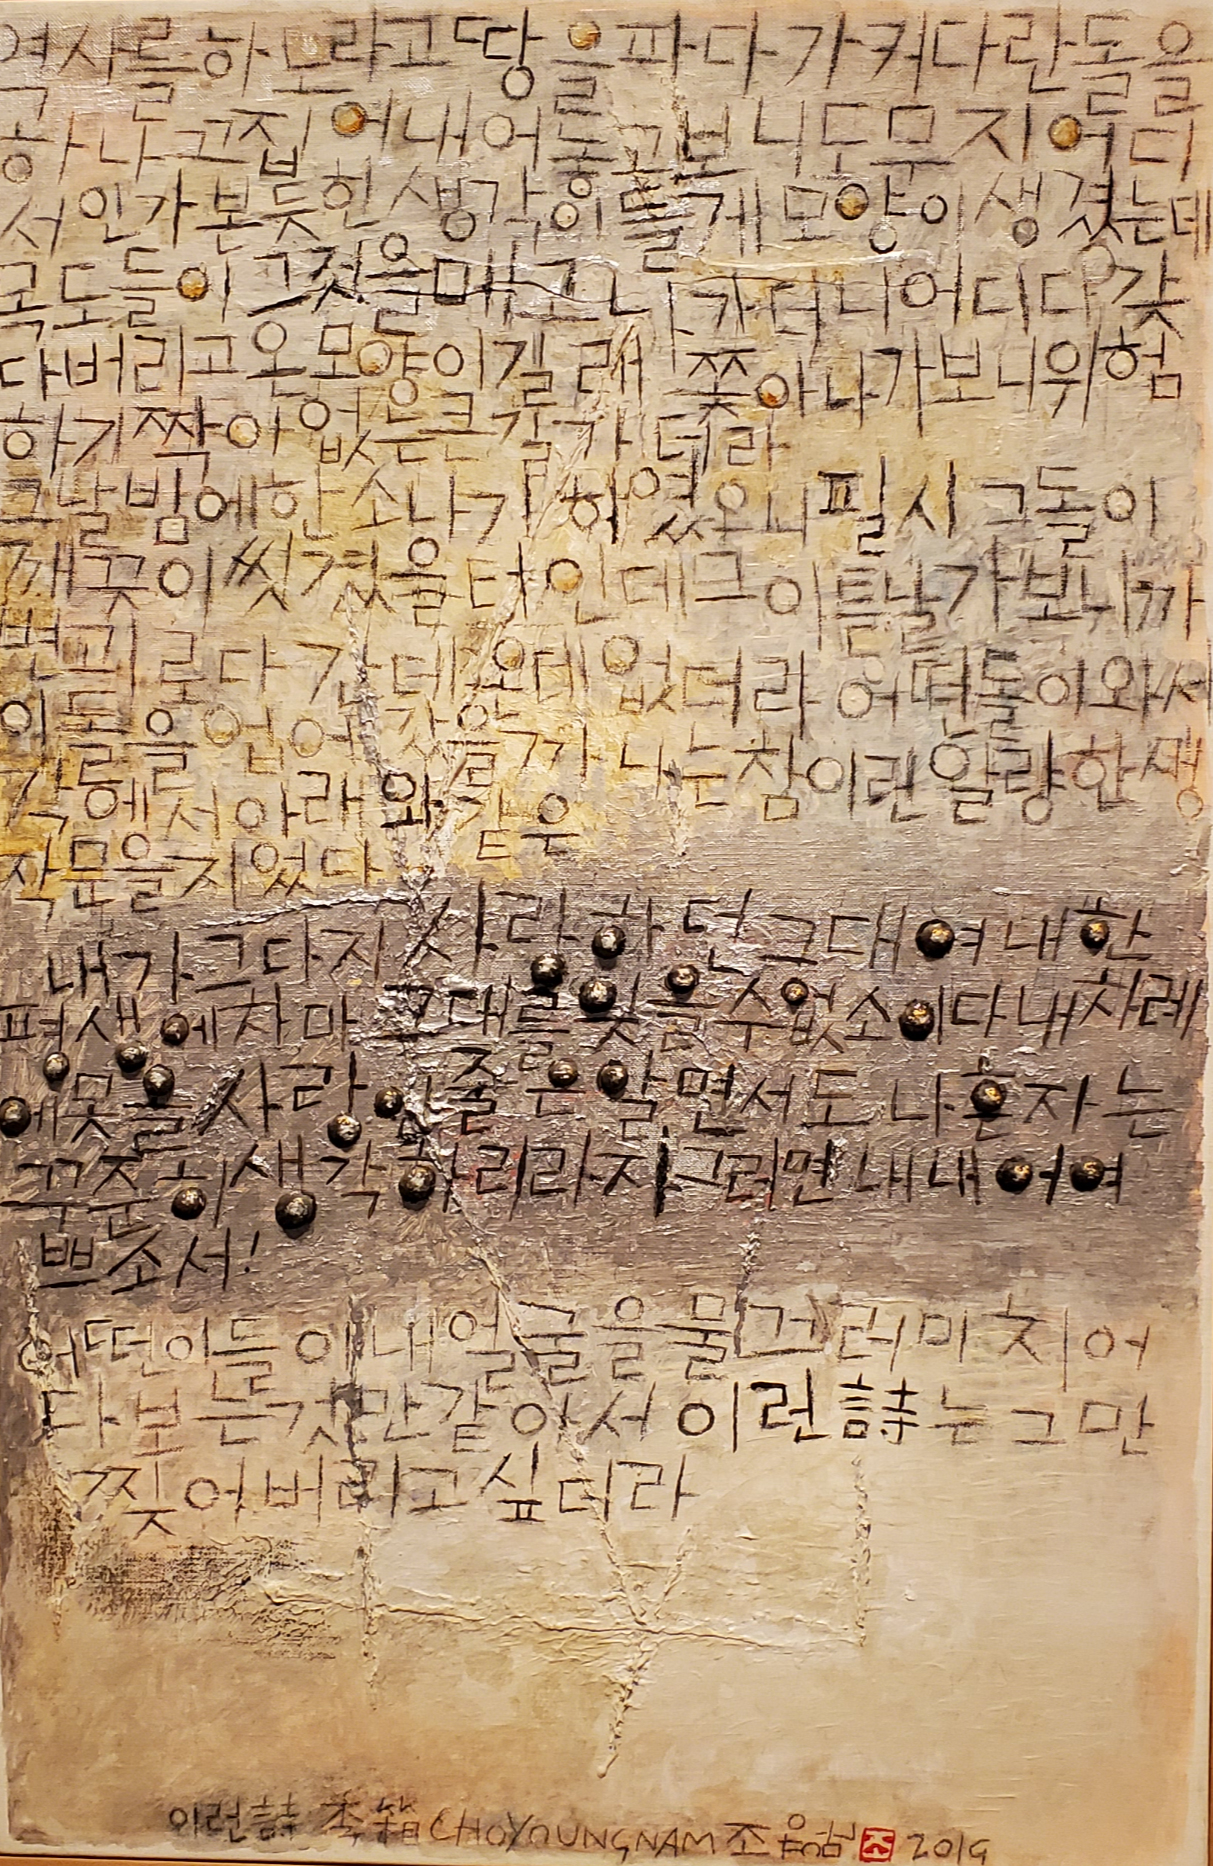 역사를하노라고땅을파다가커다란돌을
하나끄집어내어놓고보니도무지어디
서인가본듯한생각이들게모양이생겼는데
목도들이그것을메고나가더니어디다갖
다버리고온모양이길래쫓아나가보니위험
하기짝이없는큰길가더라
그날밤에한소나기하였으니필시그돌이
깨끗이씻겼을터인데그이튿날가보니까
변괴로다간데온데없더라어떤돌이와서
그돌을업어갔을까나는참이런얄량한생
각에서아래와같은
작문을지었다
내가그다지사랑하던그대여내한
평생에차마그대를잊을수없소이다내차례
에못올사랑인줄은알면서도나혼자는
꾸준히생각하리라자그러면내내어여
쁘소서!
어떤이들이내얼굴을물끄러미치어
다보는것만같아서이런詩는그만
찢어버리고싶더라
이런詩 李箱CHOYOUNGNAM조영남조 2019